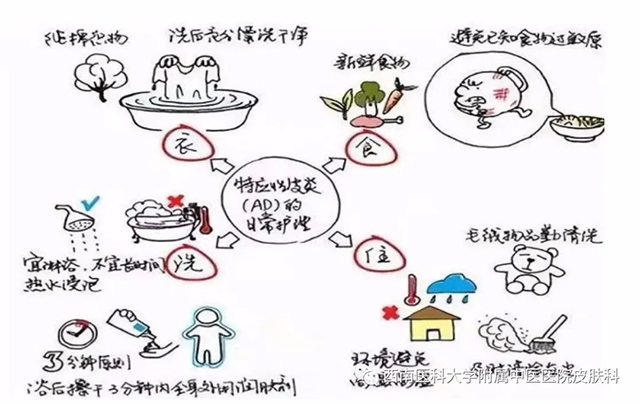 纯棉衣物
洗后充分漂洗干净
新鲜食物
避免已知食物过敏原
衣
食
特应性皮炎
(AD)的
日常护理
洗
住
宜淋浴、不宜长时间
热水浸泡
毛绒物品勤清洗
3分钟原则
浴后擦干3分钟内全身外用润肤剂
环境避免
西南医科大学附属中医医院皮肤科